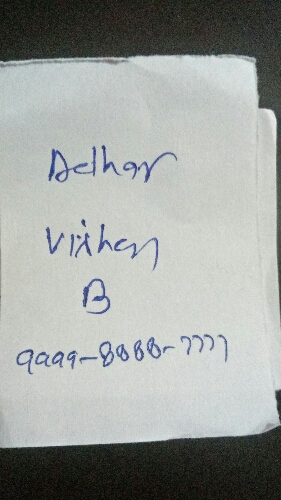 Adhar
Vixhen
B
9999-8888-7777